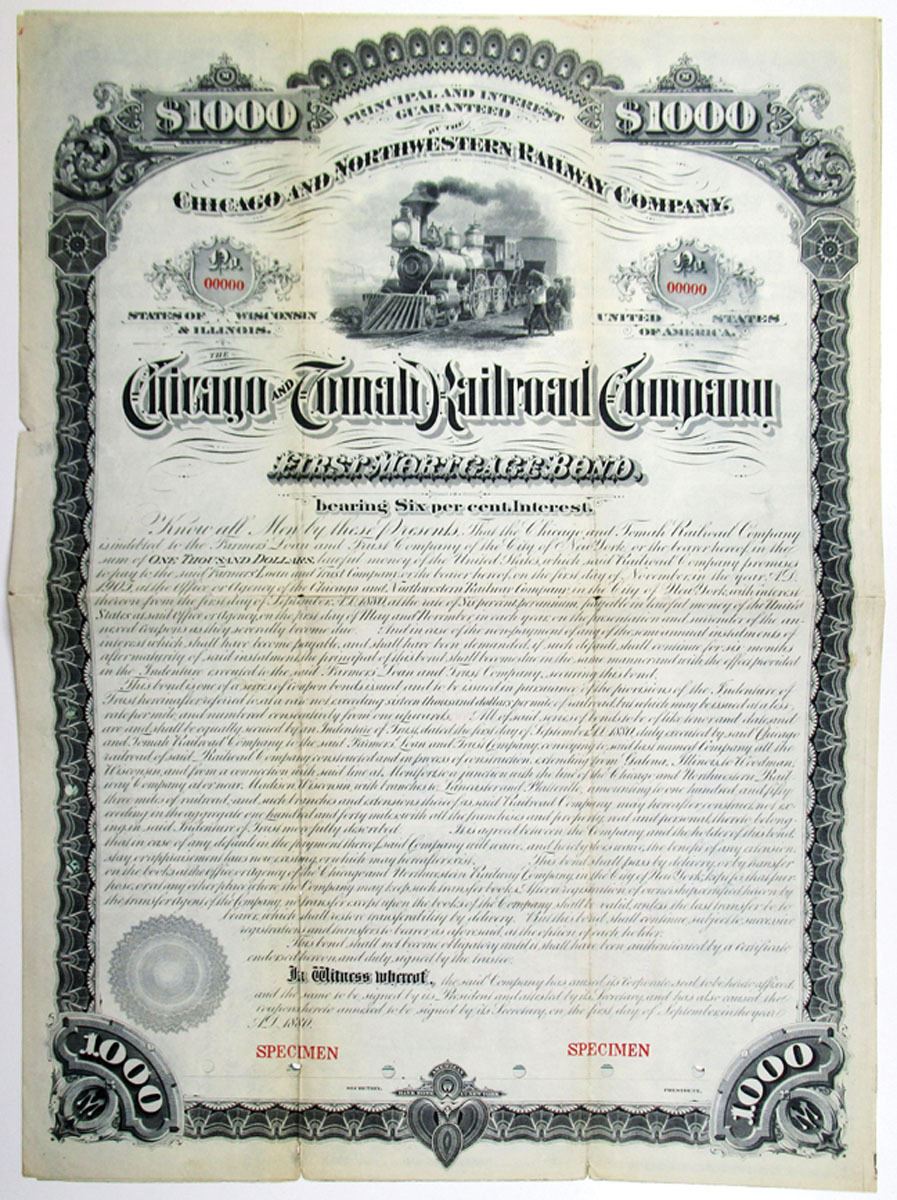 $1000
$1000
PRINCIPAL AND INTEREST
GUARANTEED
BY THE
CHICAGO AND NORTHWESTERN RAILWAY COMPANY.
No.
00000
No.
00000
STATES OF WISCONSIN
& ILLINOIS.
UNITED STATES
OF AMERICA.
THE
Chicago AND Tomah Railroad Company
FIRST MORTGAGE BOND,
bearing Six per cent. Interest.
Know all Men by these Presents, That the Chicago and Tomah Railroad Company
is indebted to the Farmers' Loan and Trust Company of the City of New York, or the bearer hereof, in the
sum of ONE THOUSAND DOLLARS, lawful money of the United States, which said Railroad Company promises
to pay to the said Farmers' Loan and Trust Company, or the bearer hereof, on the first day of November, in the year, A.D.
1905, at the office or Agency of the Chicago and Northwestern Railway Company, in the City of New York, with interest
thereon from the first day of September, A.D. 1880, at the rate of six per cent. per annum, payable in lawful money of the United
States at said Office or Agency, on the first day of May and November in each year, on the presentation and surrender of the an-
nexed coupons as they severally become due. And in case of the non-payment of any of the semi-annual instalments of
interest which shall have become payable, and shall have been demanded, if such default shall continue for six months
after maturity of said instalment, the principal of this bond shall become due in the same manner and with the effect provided
in the Indenture executed to the said Farmers' Loan and Trust Company, securing this bond.
This bond is one of a series of coupon bonds issued and to be issued in pursuance of the provisions of the Indenture of
Trust hereinafter referred to, at a rate not exceeding sixteen thousand dollars per mile of railroad, but which may be issued at a less
rate per mile, and numbered consecutively from one upwards. All of said series of bonds to be of like tenor and date, and
are and shall be equally secured by an Indenture of Trust, dated the first day of September, A.D. 1880, duly executed by said Chicago
and Tomah Railroad Company to the said Farmers' Loan and Trust Company, conveying to said last named Company all the
railroad of said Railroad Company constructed and in process of construction, extending from Galena, Illinois, to Woodman,
Wisconsin, and from a connection with said line at Montfort, to a junction with the line of the Chicago and Northwestern Rail-
way Company at or near Madison, Wisconsin, with branches to Lancaster and Platteville, amounting to one hundred and fifty
three miles of railroad, and such branches and extensions thereof as said Railroad Company may hereafter construct, not ex-
ceeding in the aggregate one hundred and forty miles, with all the franchises and property, real and personal, thereto belong-
ing, in said Indenture of Trust more fully described. It is agreed between the Company and the holder of this bond,
that in case of any default in the payment thereof, said Company will waive, and hereby does waive, the benefit of any extension,
stay or appraisement laws now existing, or which may hereafter exist. This bond shall pass by delivery, or by transfer
on the books at the office or Agency of the Chicago and Northwestern Railway Company, in the City of New York, kept for that pur-
pose, or at any other place where the Company may keep such transfer books. After a registration of ownership certified hereon by
the transfer agent of the Company, no transfer except upon the books of the Company shall be valid, unless the last transfer be to
bearer, which shall restore transferability by delivery. But this bond shall continue subject to successive
registrations and transfers to bearer as aforesaid, at the option of each holder.
This bond shall not become obligatory until it shall have been authenticated by a certificate
endorsed hereon and duly signed by the trustee.
In Witness whereof, the said Company has caused its corporate seal to be hereto affixed
and the same to be signed by its President and attested by its Secretary, and has also caused the
coupons hereto annexed to be signed by its Secretary, on the first day of September, in the year
A.D. 1880.
SPECIMEN
SPECIMEN
SECRETARY.
PRESIDENT.
AMERICAN
BANK NOTE CO. NEW YORK
1000
M
1000
M